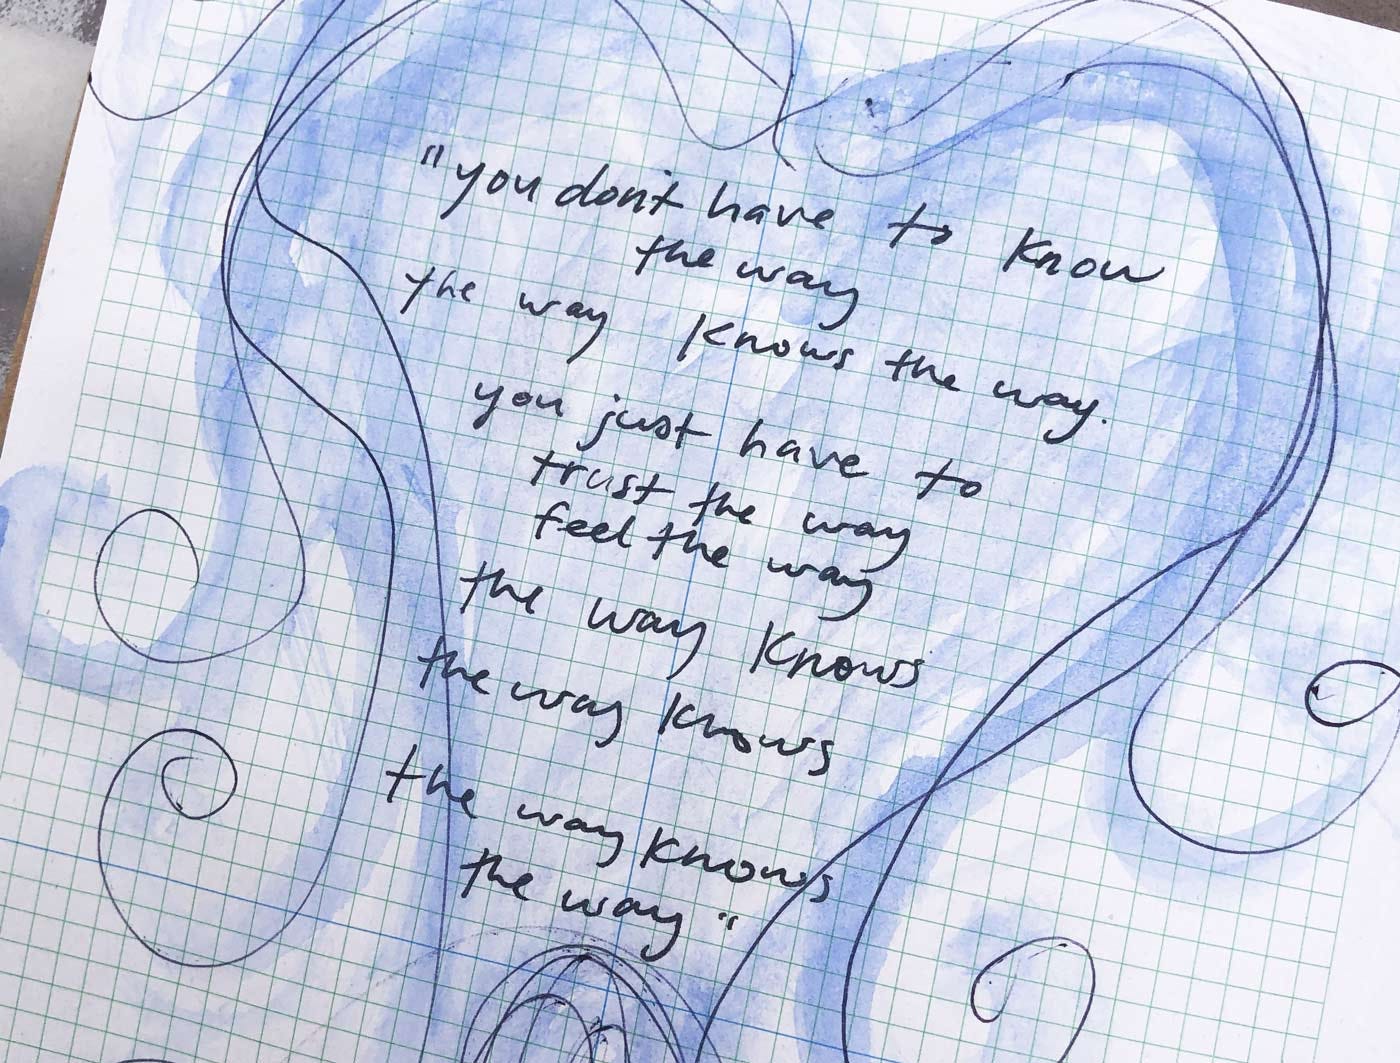 "you don't have to know
the way
the way knows the way.
you just have to
trust the way
feel the way
the way knows
the way knows
the way knows
the way"